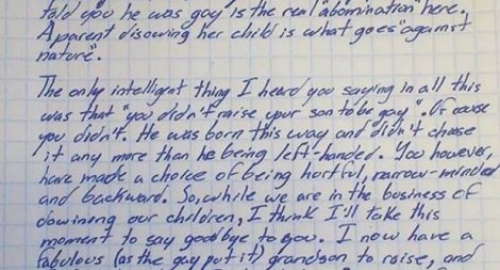 told you he was gay is the real "abomination" here.
A parent disowing her child is what goes "against
nature".
The only intelligent thing I heard you saying in all this
was that "you didn't raise your son to be gay". Of couse
you didn't. He was born this way and didn't choose
it any more than he being left-handed. You however,
have made a choice of being hortful, narrow-minded
and backward. So, while we are in the business of
downing our children, I think I'll take this
moment to say goodbye to you. I now have a
fabulous (as the gay put it) grandson to raise, and